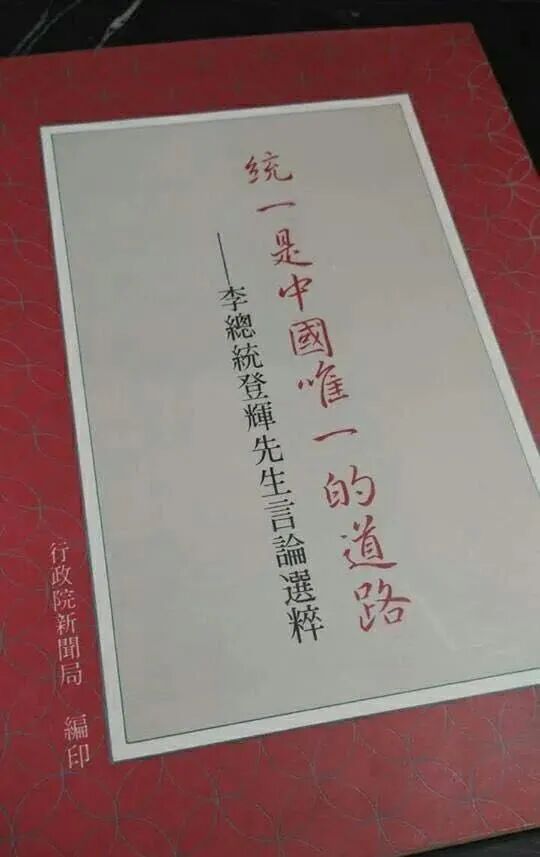 統一是中國唯一的道路
——李總統登輝先生言論選粹
行政院新聞局 編印